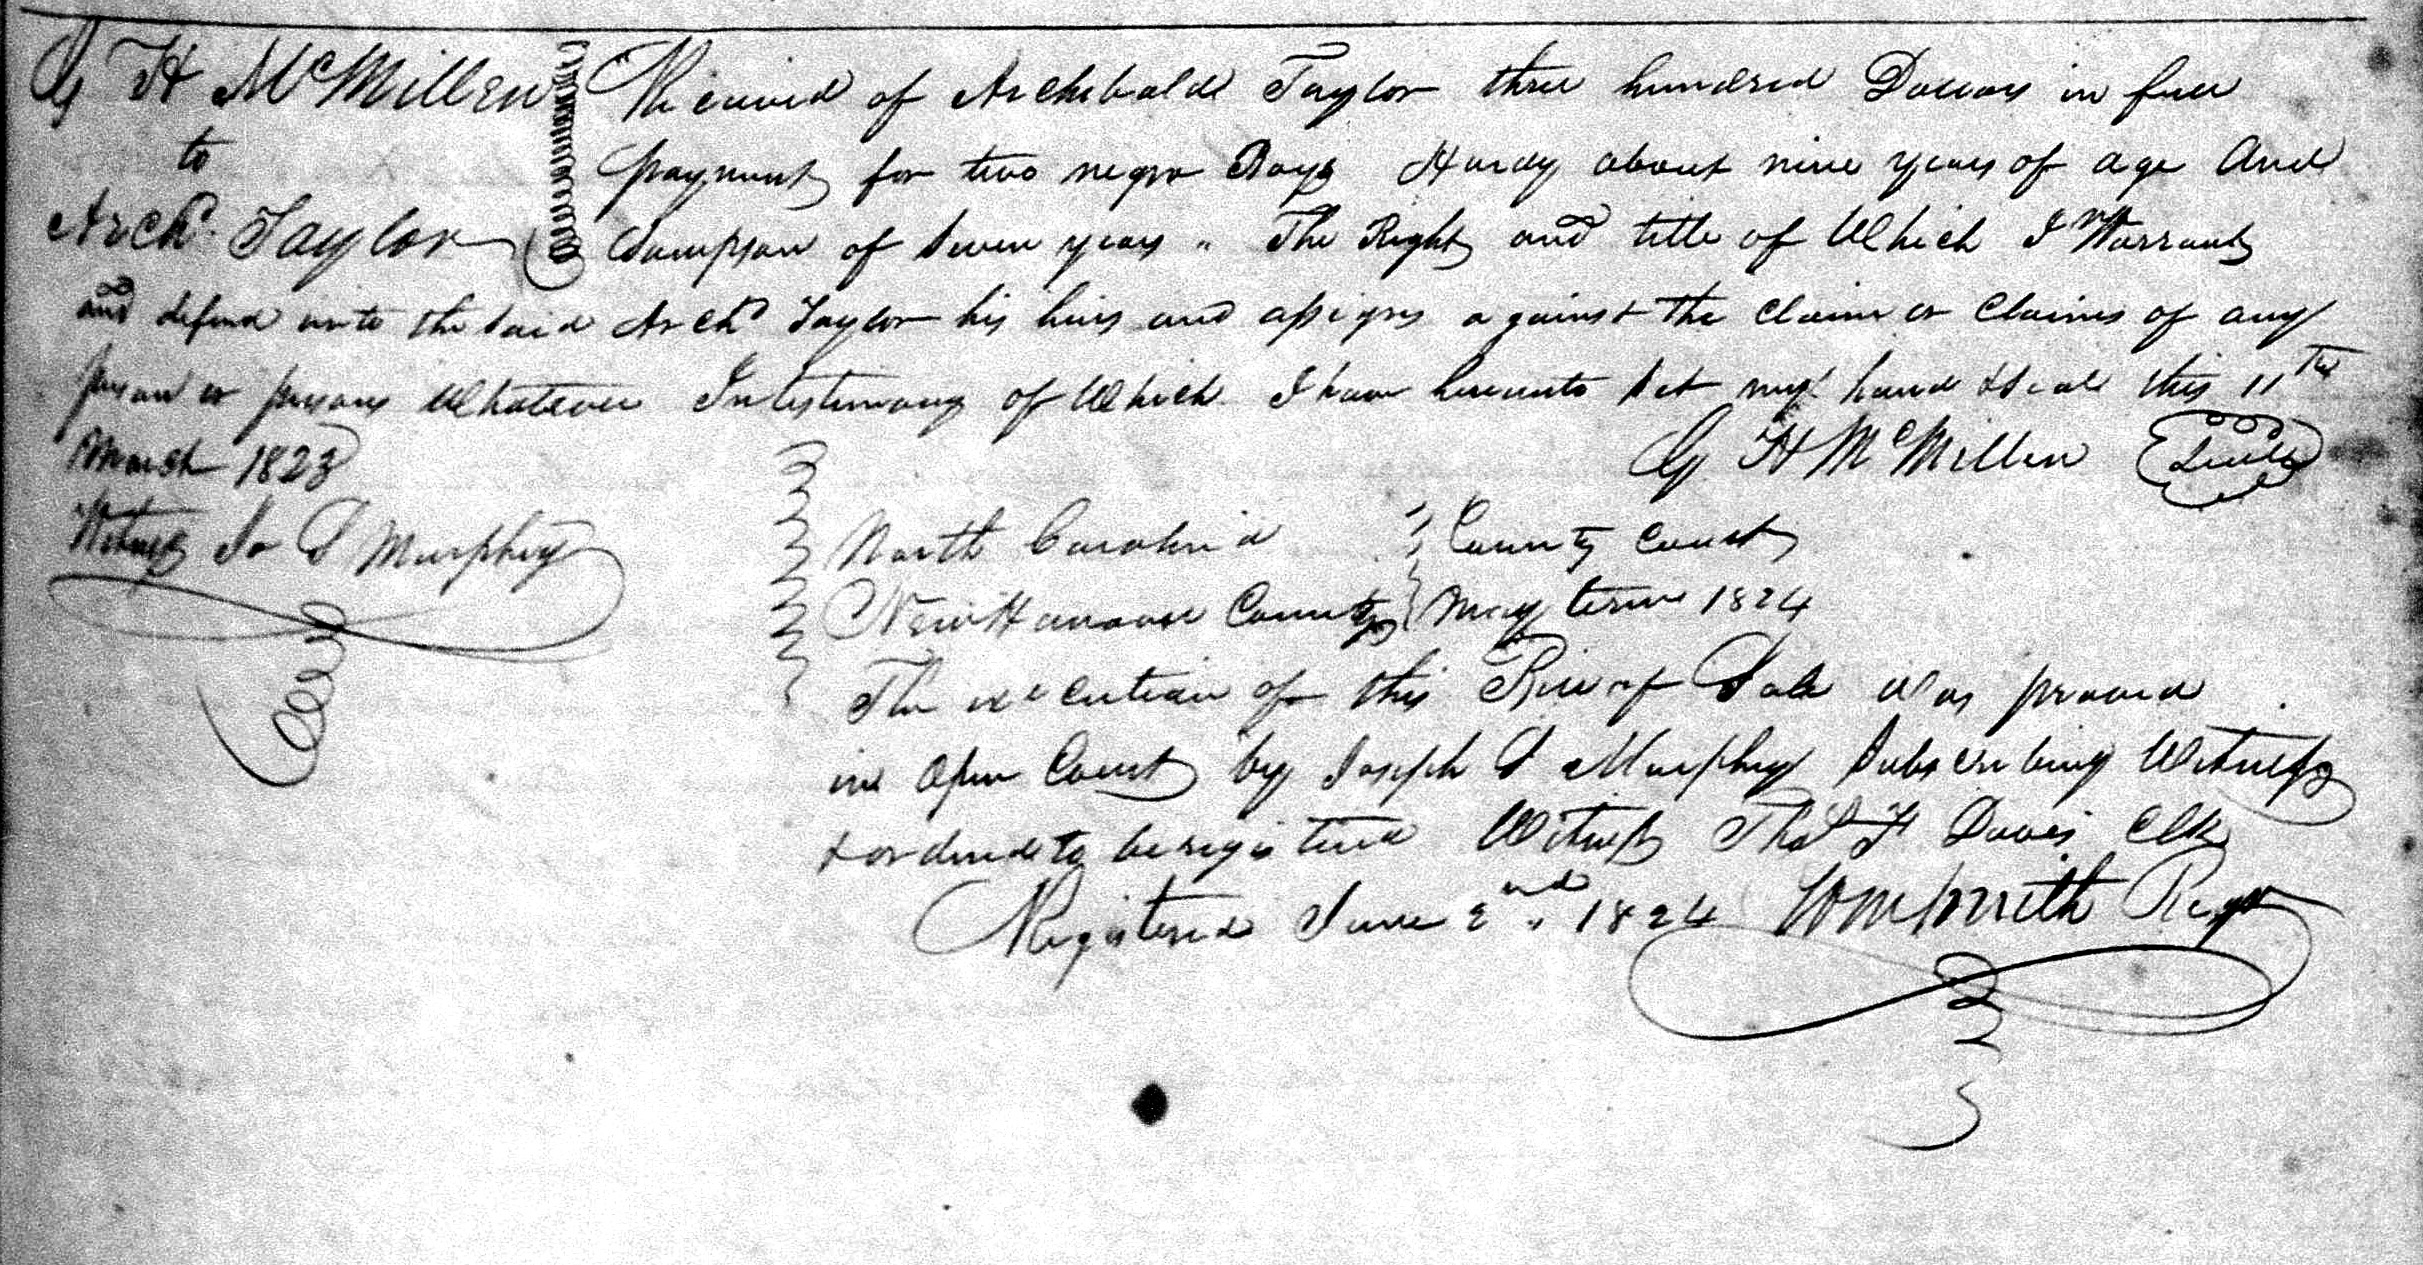 G H McMillen
to
Archd. Taylor
Received of Archibald Taylor three hundred Dollars in full
payment for two negro Boys Hardy about nine years of age And
Sampson of Seven years " The Right and title of Which I Warrant
and defend unto the Said Archd Taylor his heirs and assigns against the Claim or Claims of any
person or persons Whatever In testimony of Which I have hereunto Set my hand & Seal this 11th
March 1823
G H McMillen Seal
Witness Jo S Murphey
North Carolina County Court
New Hanover County May term 1824
The execution of this Bill of Sale Was proved
in Open Court by Joseph S Murphey Subscribing Witness
& ordered to be registered Witness Thos F Davis Clk
Registered June 2nd 1824 Wm Smith Regr